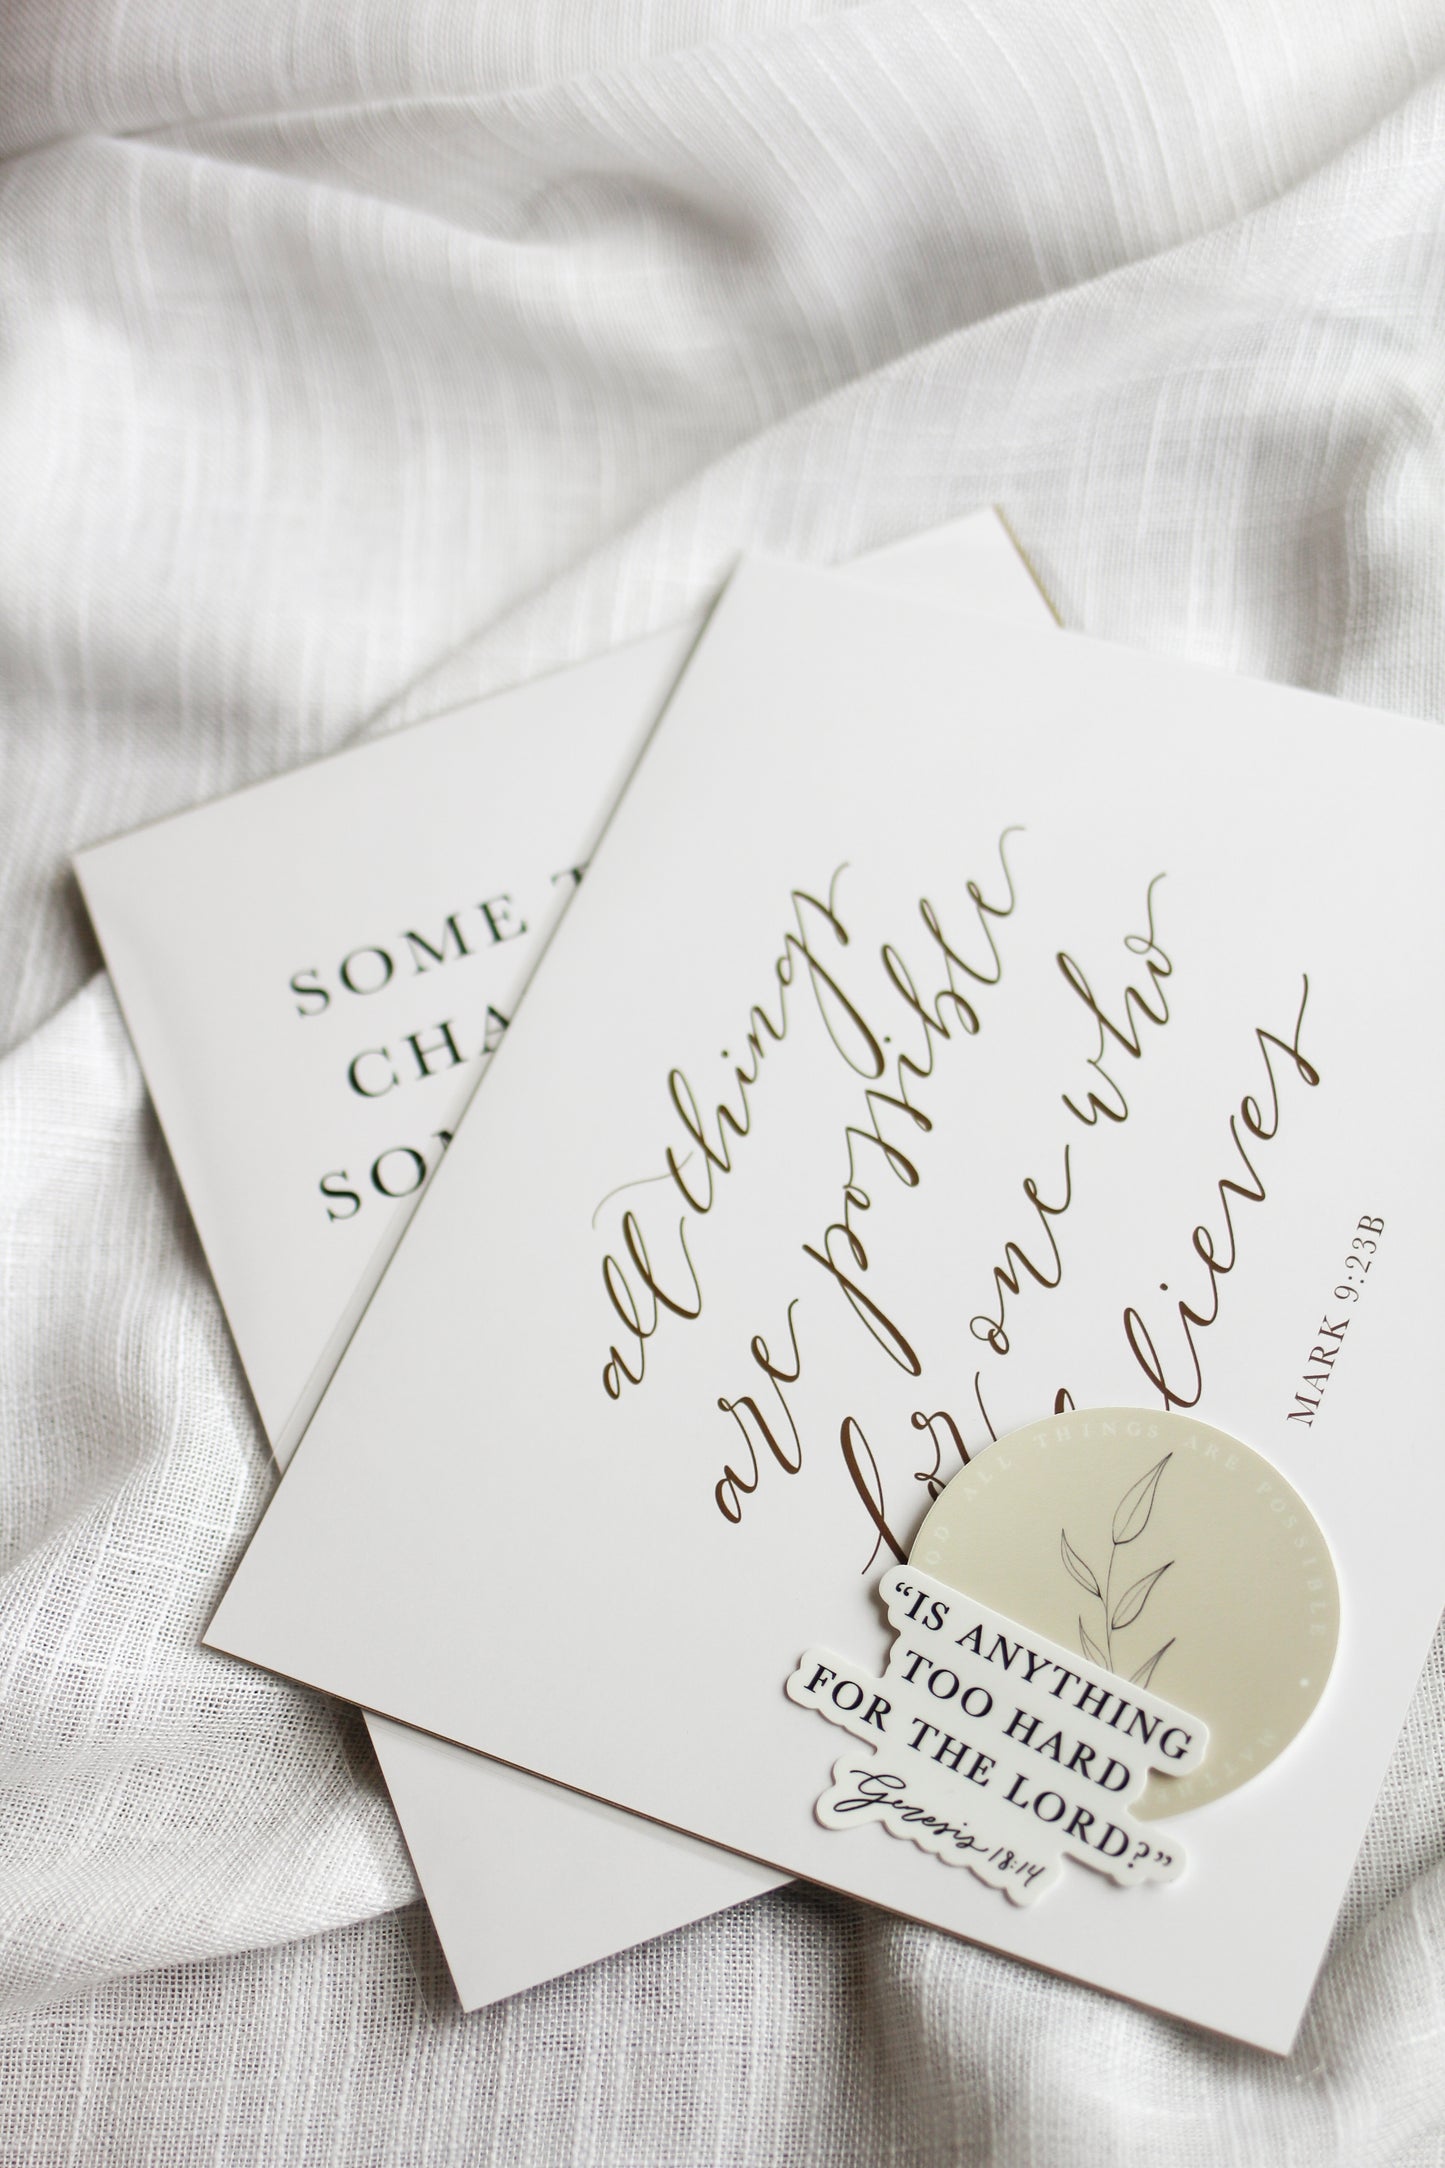 SOME
CHA
SO
all things
are possible
for one who
lieves
MARK 9:23B
OD ALL THINGS ARE POSSIBLE • MATTHE
"IS ANYTHING
TOO HARD
FOR THE LORD?"
Genesis 18:14